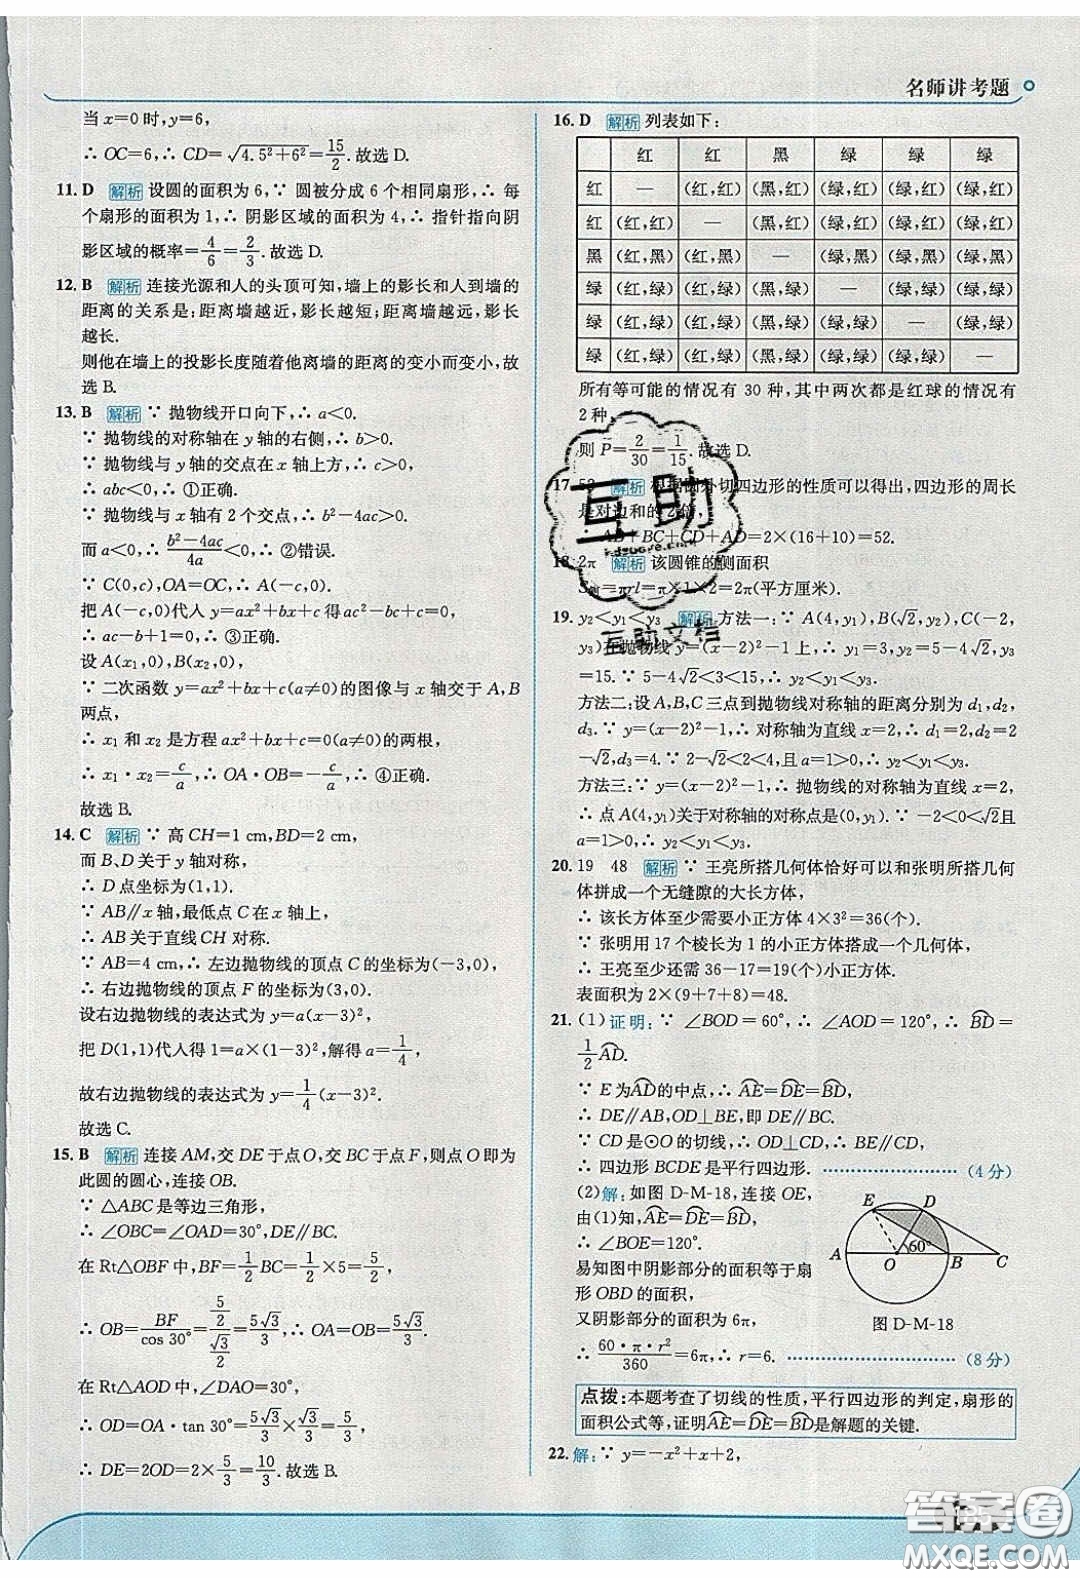 名师讲考题
当 x=0 时,y=6,
∴ OC=6,∴ CD=√(4.5²+6²)=15/2.故选 D.
11. D 解析 设圆的面积为 6,∵ 圆被分成 6 个相同扇形,∴ 每
个扇形的面积为 1,∴ 阴影区域的面积为 4,∴ 指针指向阴
影区域的概率=4/6=2/3.故选 D.
12. B 解析 连接光源和人的头顶可知,墙上的影长和人到墙的
距离的关系是:距离墙越近,影长越短;距离墙越远,影长
越长.
则他在墙上的投影长度随着他离墙的距离的变小而变小,故
选 B.
13. B 解析 ∵ 抛物线开口向下,∴ a<0.
∵ 抛物线的对称轴在 y 轴的右侧,∴ b>0.
∵ 抛物线与 y 轴的交点在 x 轴上方,∴ c>0,
∴ abc<0,∴ ①正确.
∵ 抛物线与 x 轴有 2 个交点,∴ b²-4ac>0,
而 a<0,∴ (b²-4ac)/4a<0,∴ ②错误.
∵ C(0,c),OA=OC,∴ A(-c,0).
把 A(-c,0)代入 y=ax²+bx+c得 ac²-bc+c=0,
∴ ac-b+1=0,∴ ③正确.
设 A(x₁,0),B(x₂,0),
∵ 二次函数 y=ax²+bx+c(a≠0)的图像与 x 轴交于 A,B
两点,
∴ x₁ 和 x₂ 是方程 ax²+bx+c=0(a≠0)的两根,
∴ x₁·x₂=c/a,∴ OA·OB=-c/a,∴ ④正确.
故选 B.
14. C 解析 ∵ 高 CH=1 cm,BD=2 cm,
而 B、D 关于 y 轴对称,
∴ D 点坐标为(1,1).
∵ AB∥x 轴,最低点 C 在 x 轴上,
∴ AB 关于直线 CH 对称.
∵ AB=4 cm,∴ 左边抛物线的顶点 C 的坐标为(-3,0),
∴ 右边抛物线的顶点 F 的坐标为(3,0).
设右边抛物线的表达式为 y=a(x-3)²,
把 D(1,1)代入得 1=a×(1-3)²,解得 a=1/4,
故右边抛物线的表达式为 y=1/4(x-3)².
故选 C.
15. B 解析 连接 AM,交 DE 于点 O,交 BC 于点 F,则点 O 即为
此圆的圆心,连接 OB.
∵ △ABC 是等边三角形,
∴ ∠OBC=∠OAD=30°,DE∥BC.
在 Rt△OBF 中,BF=1/2 BC=1/2×5=5/2,
∴ OB=BF/cos 30°=(5/2)/(√3/2)=5√3/3,∴ OA=OB=5√3/3.
在 Rt△AOD 中,∠DAO=30°,
∴ OD=OA·tan 30°=5√3/3×√3/3=5/3,
∴ DE=2OD=2×5/3=10/3.故选 B.
16. D 解析 列表如下:
红 红 黑 绿 绿 绿
红 — (红,红) (黑,红) (绿,红) (绿,红) (绿,红)
红 (红,红) — (黑,红) (绿,红) (绿,红) (绿,红)
黑 (红,黑) (红,黑) — (绿,黑) (绿,黑) (绿,黑)
绿 (红,绿) (红,绿) (黑,绿) — (绿,绿) (绿,绿)
绿 (红,绿) (红,绿) (黑,绿) (绿,绿) — (绿,绿)
绿 (红,绿) (红,绿) (黑,绿) (绿,绿) (绿,绿) —
所有等可能的情况有 30 种,其中两次都是红球的情况有
2 种,
则 P=2/30=1/15.故选 D.
17. 52 解析 根据圆外切四边形的性质可以得出,四边形的周长
是对边和的 2 倍,
∴ AB+BC+CD+AD=2×(16+10)=52.
18. 2π 解析 该圆锥的侧面积
S侧=πrl=π×1×2=2π(平方厘米).
19. y₂<y₁<y₃ 解析 方法一:∵ A(4,y₁),B(√2,y₂),C(-2,
y₃)在抛物线 y=(x-2)²-1 上,∴ y₁=3,y₂=5-4√2,y₃
=15.∵ 5-4√2<3<15,∴ y₂<y₁<y₃.
方法二:设 A,B,C 三点到抛物线对称轴的距离分别为 d₁,d₂,
d₃.∵ y=(x-2)²-1,∴ 对称轴为直线 x=2,∴ d₁=2,d₂=2
-√2,d₃=4.∵ 2-√2<2<4,且 a=1>0,∴ y₂<y₁<y₃.
方法三:∵ y=(x-2)²-1,∴ 抛物线的对称轴为直线 x=2,
∴ 点 A(4,y₁)关于对称轴的对称点是(0,y₁).∵ -2<0<√2且
a=1>0,∴ y₂<y₁<y₃.
20. 19 48 解析 ∵ 王亮所搭几何体恰好可以和张明所搭几何
体拼成一个无缝隙的大长方体,
∴ 该长方体至少需要小正方体 4×3²=36(个).
∵ 张明用 17 个棱长为 1 的小正方体搭成一个几何体,
∴ 王亮至少还需 36-17=19(个)小正方体.
表面积为 2×(9+7+8)=48.
21. (1)证明:∵ ∠BOD=60°,∴ ∠AOD=120°,∴ BD⌒=
1/2 AD⌒.
∵ E 为AD⌒的中点,∴ AE⌒=DE⌒=BD⌒,
∴ DE∥AB,OD⊥BE,即 DE∥BC.
∵ CD 是⊙O 的切线,∴ OD⊥CD,∴ BE∥CD,
∴ 四边形 BCDE 是平行四边形. ……………… (4 分)
(2)解:如图 D-M-18,连接 OE,
由(1)知,AE⌒=DE⌒=BD⌒,
∴ ∠BOE=120°.
易知图中阴影部分的面积等于扇
形 OBD 的面积,
又阴影部分的面积为 6π,
∴ 60·π·r²/360=6π,∴ r=6. ……………… (8 分)
E D A O 60° B C
图 D-M-18
点拨:本题考查了切线的性质,平行四边形的判定,扇形的
面积公式等,证明AE⌒=DE⌒=BD⌒是解题的关键.
22. 解:∵ y=-x²+x+2,
互助
互助文档
答案卷
MXQE.COM